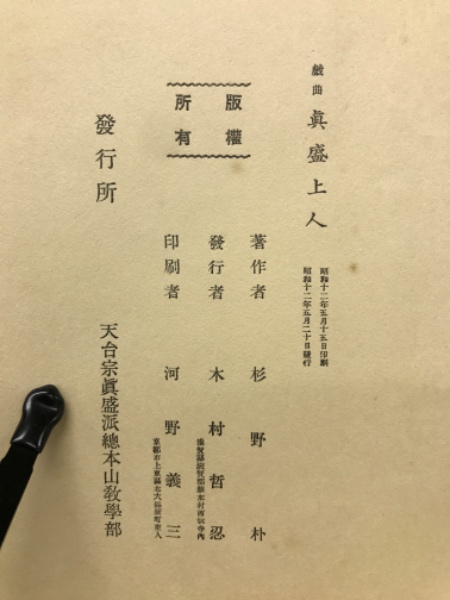 戯曲 眞盛上人
昭和十二年五月十五日印刷
昭和十二年五月二十日發行
版權
所有
著作者 杉野朴
發行者 木村哲忍
滋賀縣滋賀郡坂本村西教寺內
印刷者 河野義三
京都市上京區
發行所 天台宗眞盛派總本山敎學部